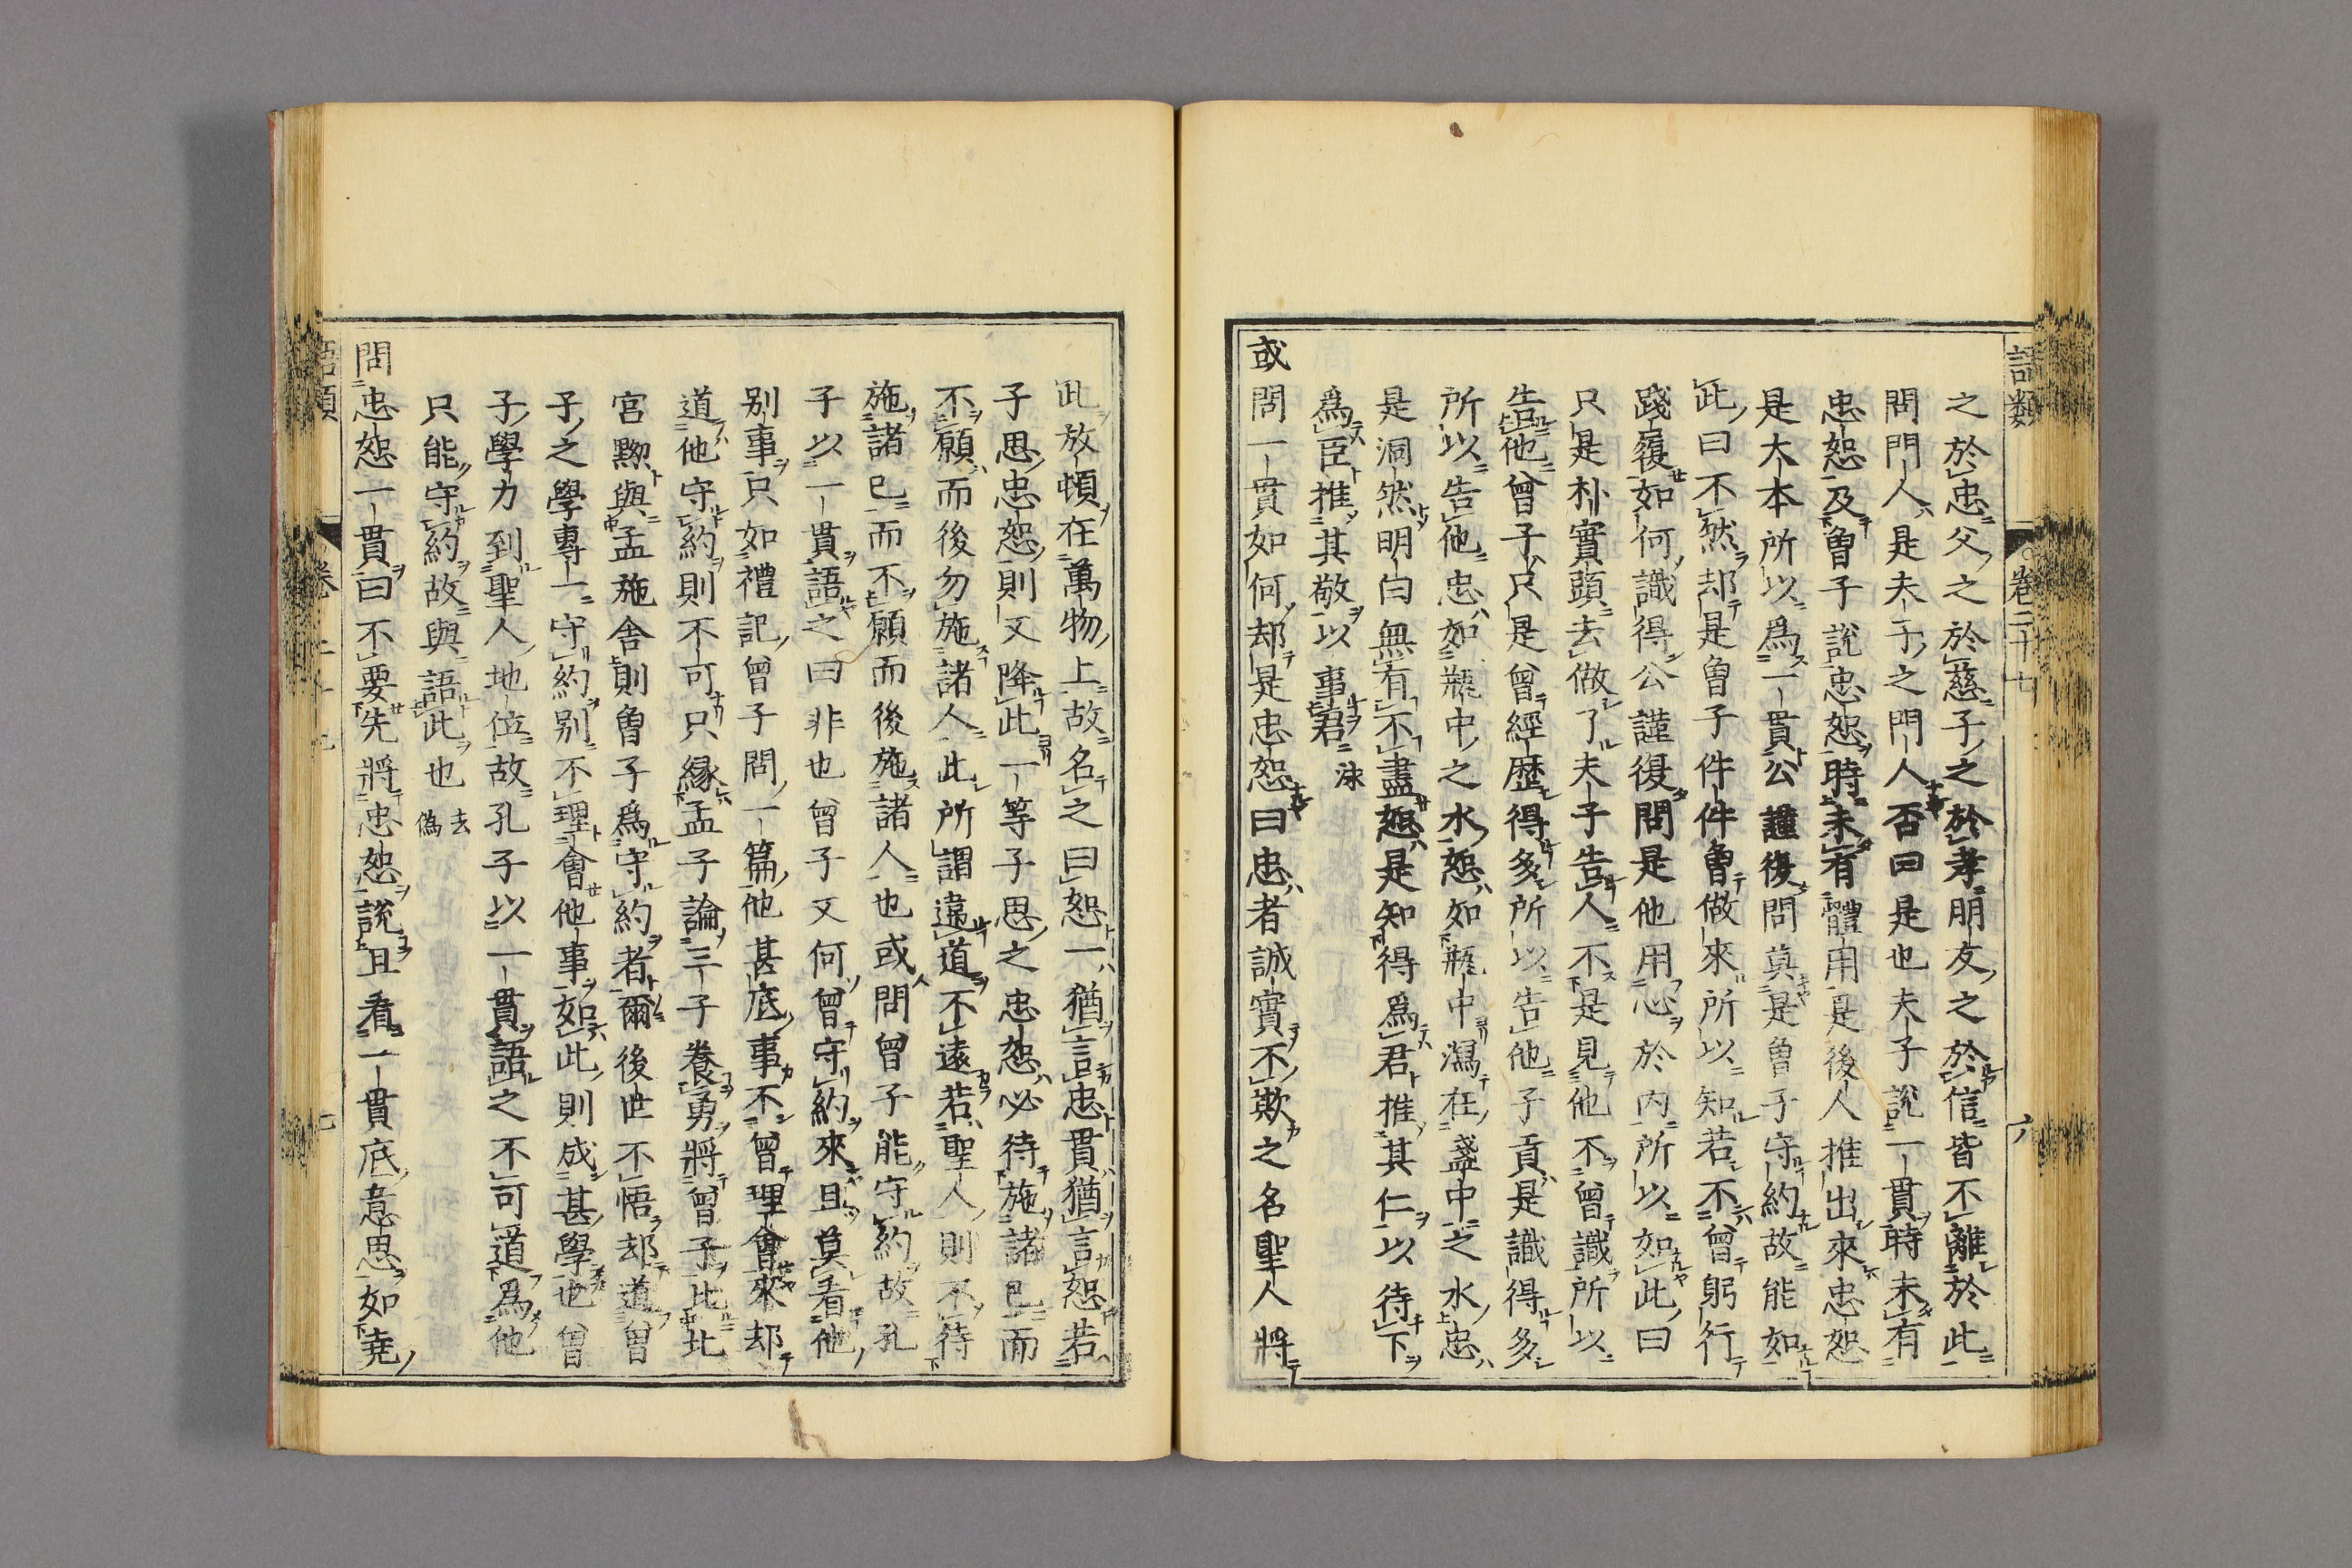 語類
卷二十七
六
之於忠父之於慈子之於孝朋友之於信皆不離於此
問門人是夫子之門人否曰是也夫子說一貫時未有
忠恕及曾子說忠恕時未有體用是後人推出來忠恕
是大本所以爲一貫公謹復問莫是曾子守約故能如
此曰不然却是曾子件件曾做來所以知若不曾躬行
踐履如何識得公謹復問是他用心於内所以如此曰
只是朴實頭去做了夫子告人不是見他不曾識所以
告他曾子只是曾經歷得多所以告他子貢是識得多
所以告他忠如瓶中之水恕如瓶中瀉在盞中之水忠
是洞然明白無有不盡恕是知得爲君推其仁以待下
爲臣推其敬以事君 泳
或問一貫如何却是忠恕曰忠者誠實不欺之名聖人將
此放頓在萬物上故名之曰恕一猶言忠貫猶言恕若
子思忠恕則又降此一等子思之忠恕必待施諸己而
不願而後勿施諸人此所謂違道不遠若聖人則不待
施諸己而不願而後施諸人也或問曾子能守約故孔
子以一貫語之曰非也曾子又何曾守約來且莫看他
别事只如禮記曾子問一篇他甚底事不曾理會來却
道他守約則不可只緣孟子論三子養勇將曾子比北
宮黝與孟施舍則曾子爲守約者爾後世不悟却道曾
子之學專一守約别不理會他事如此則成甚學也曾
子學力到聖人地位故孔子以一貫語之不可道爲他
只能守約故與語此也 去僞
問忠恕一貫曰不要先將忠恕說且看一貫底意思如堯
語類
卷二十七
七